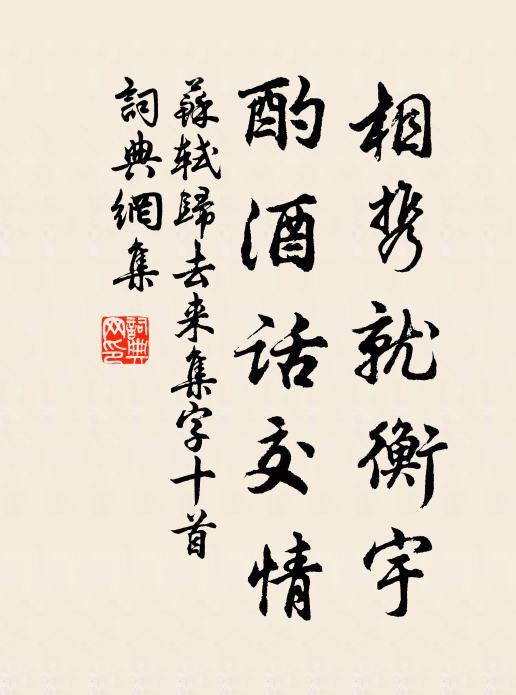 相携就衡宇
酌酒话交情
蘇軾歸去来集字十首
詞典網集
詞典网印